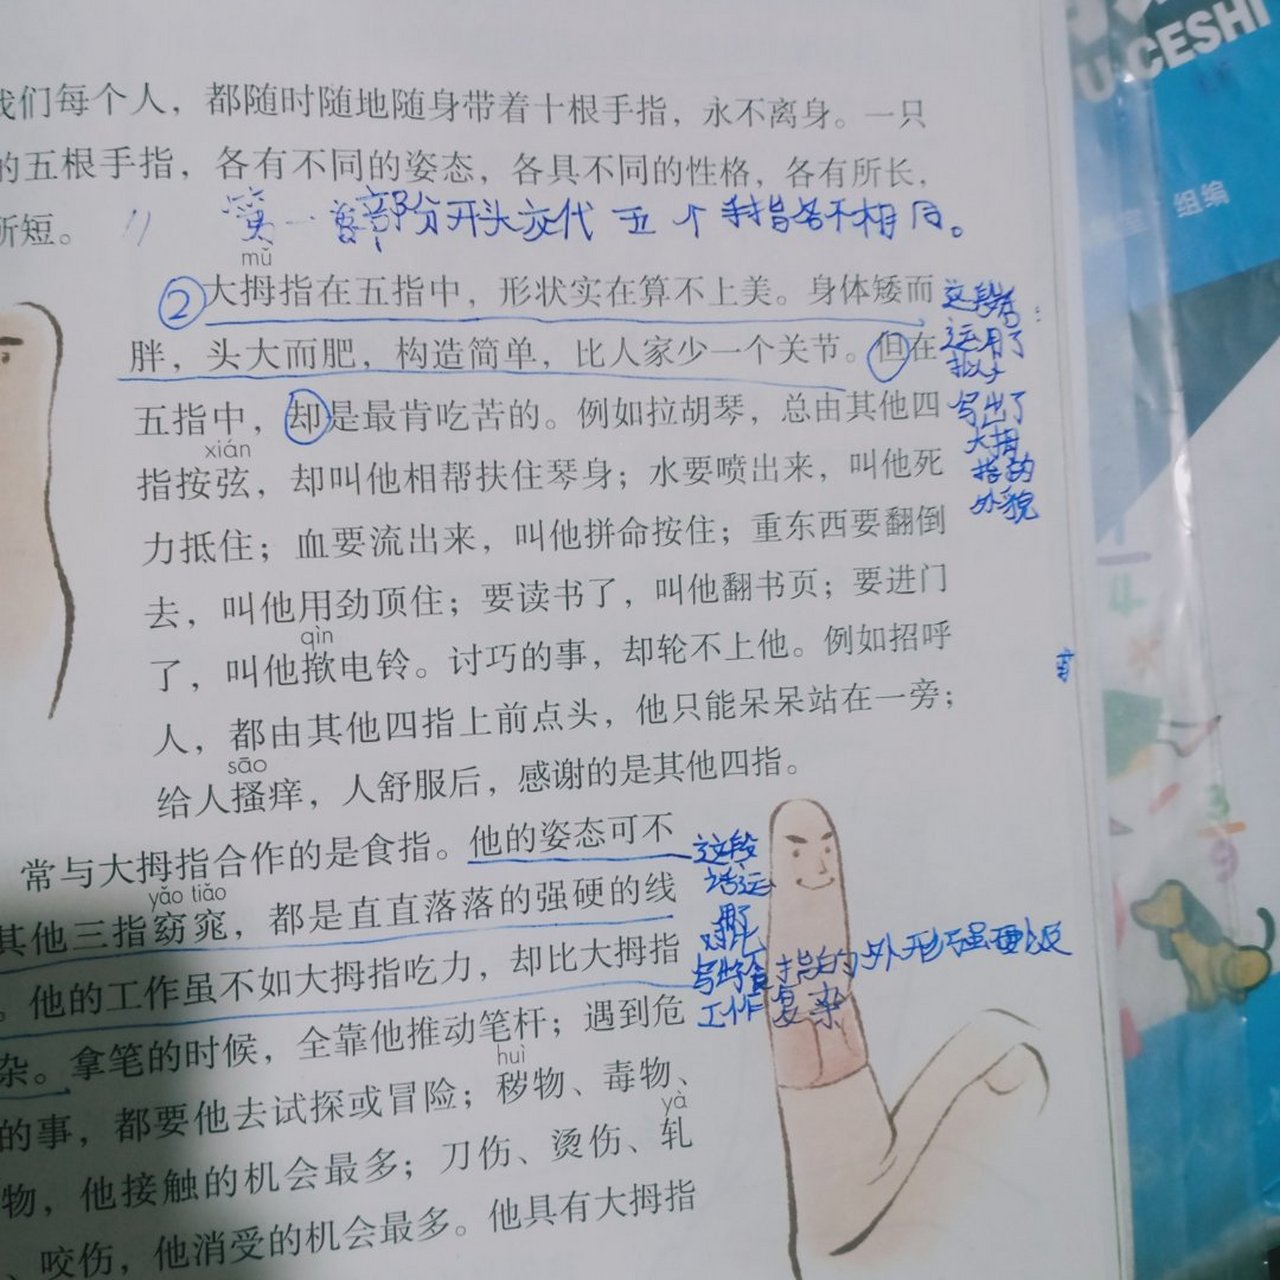 我们每个人，都随时随地随身带着十根手指，永不离身。一只
的五根手指，各有不同的姿态，各具不同的性格，各有所长，
所短。
第一部分开头交代五个手指各不相同。
mǔ
②大拇指在五指中，形状实在算不上美。身体矮而
胖，头大而肥，构造简单，比人家少一个关节。但在
五指中，却是最肯吃苦的。例如拉胡琴，总由其他四
xián
指按弦，却叫他相帮扶住琴身；水要喷出来，叫他死
力抵住；血要流出来，叫他拼命按住；重东西要翻倒
去，叫他用劲顶住；要读书了，叫他翻书页；要进门
qìn
了，叫他揿电铃。讨巧的事，却轮不上他。例如招呼
人，都由其他四指上前点头，他只能呆呆站在一旁；
sāo
给人搔痒，人舒服后，感谢的是其他四指。
这段
运用了
写出了
大拇
指的
外貌
常与大拇指合作的是食指。他的姿态可不
yǎo tiǎo
其他三指窈窕，都是直直落落的强硬的线
。他的工作虽不如大拇指吃力，却比大拇指
杂。拿笔的时候，全靠他推动笔杆；遇到危
huì
的事，都要他去试探或冒险；秽物、毒物、
yà
物，他接触的机会最多；刀伤、烫伤、轧
、咬伤，他消受的机会最多。他具有大拇指
这段
话运
对比
指的外形强硬
工作复杂
U CESHI
组编
4
3
9